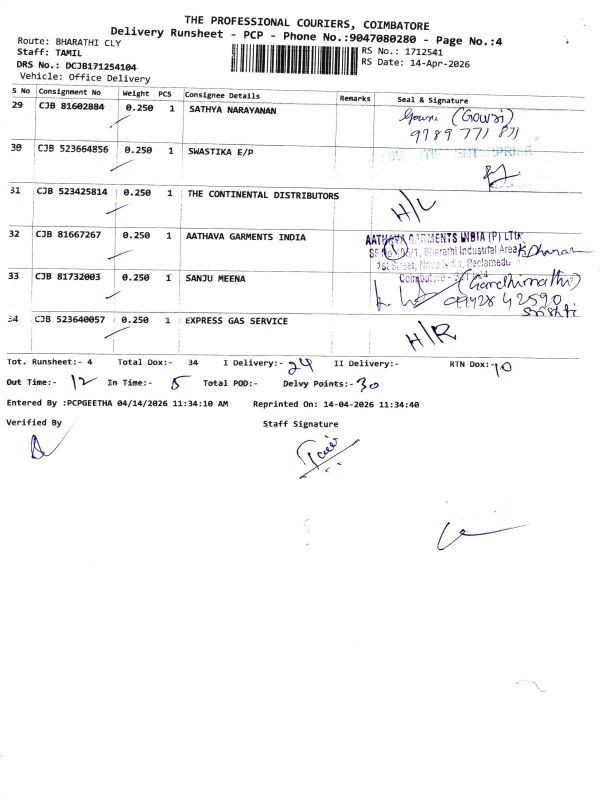 THE PROFESSIONAL COURIERS, COIMBATORE
Delivery Runsheet - PCP - Phone No.:9047080280 - Page No.:4
Route: BHARATHI CLY
RS No.: 1712541
Staff: TAMIL
RS Date: 14-Apr-2026
DRS No.: DCJB171254104
Vehicle: Office Delivery
S No Consignment No Weight PCS Consignee Details Remarks Seal & Signature
29 CJB 81602884 0.250 1 SATHYA NARAYANAN Gowri (Gowri)
9789 771 871
30 CJB 523664856 0.250 1 SWASTIKA E/P
31 CJB 523425814 0.250 1 THE CONTINENTAL DISTRIBUTORS H/L
32 CJB 81667267 0.250 1 AATHAVA GARMENTS INDIA AATHAVA GARMENTS INDIA (P) LTD
Bharathi Industrial Area
1st Street, Peelamedu
Coimbatore
33 CJB 81732003 0.250 1 SANJU MEENA (Gandhimathi)
34 CJB 523640057 0.250 1 EXPRESS GAS SERVICE H/R
Tot. Runsheet:- 4 Total Dox:- 34 I Delivery:- 24 II Delivery:- RTN Dox:- 10
Out Time:- 12 In Time:- 5 Total POD:- Delvy Points:- 30
Entered By :PCPGEETHA 04/14/2026 11:34:10 AM Reprinted On: 14-04-2026 11:34:40
Verified By Staff Signature